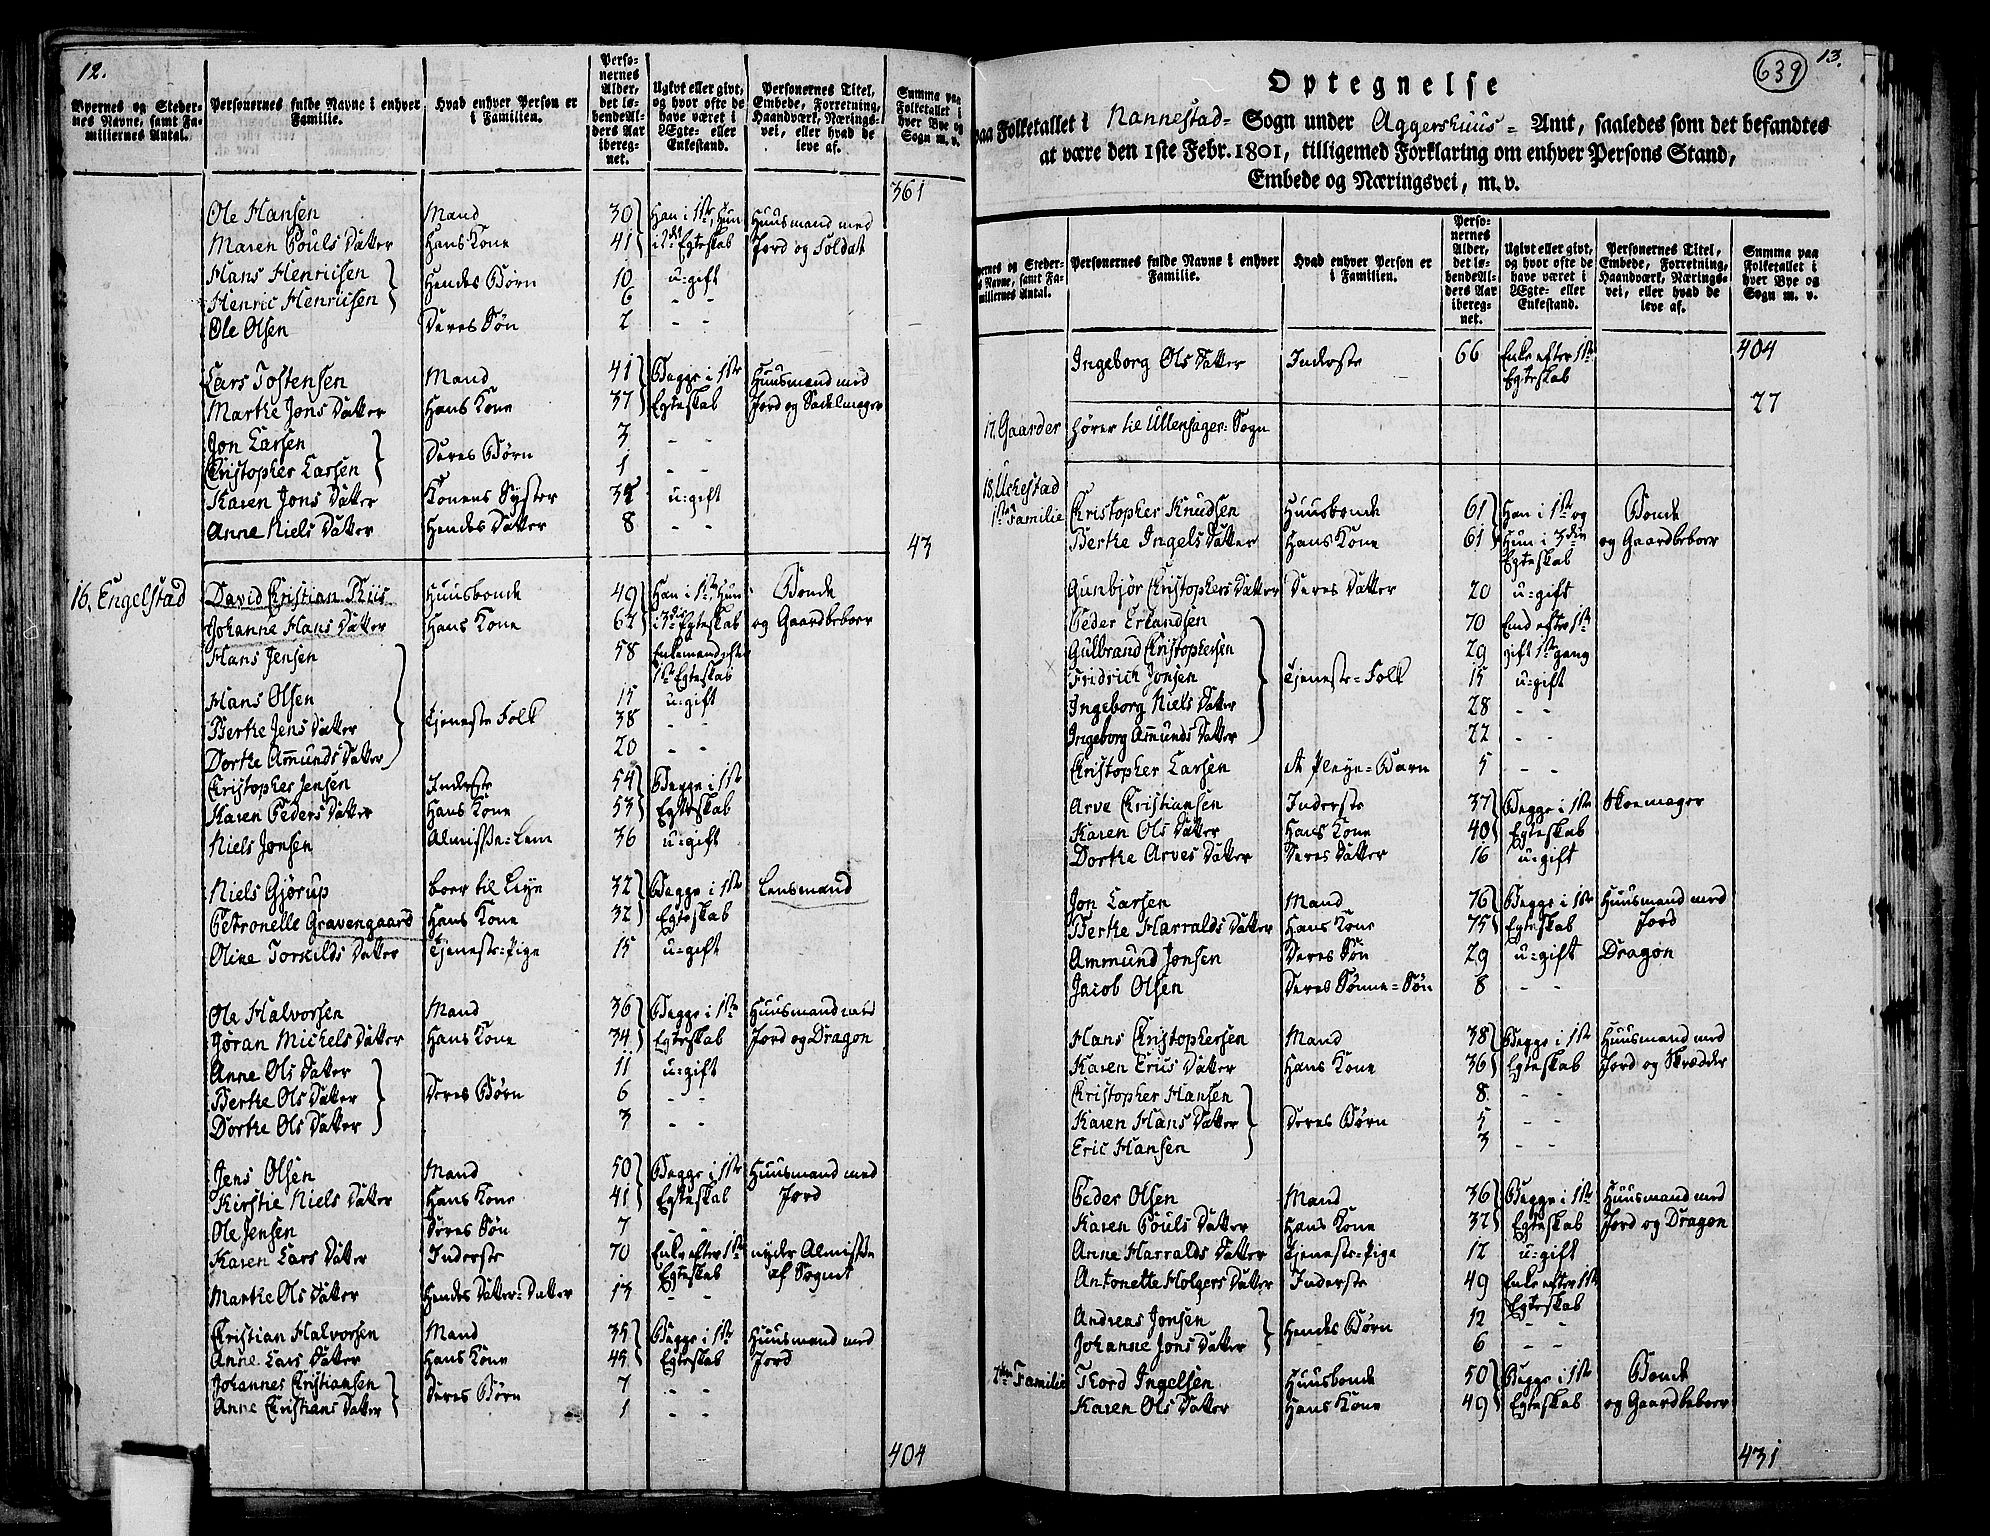 12.
Byernes og Steder-
nes Navne, samt Fa-
miliernes Antal.
Personernes fulde Navne i enhver
Familie.
Hvad enhver Person er
i Familien.
Perso-
nernes
Alder,
det lø-
bendeAl-
ders Aar
iberegnet.
Ugivt eller givt,
og hvor ofte de
have været i
Ægte- eller
Enkestand.
Personernes Titel,
Embede, Forretning,
Haandværk, Nærings-
vei, eller hvad de
leve af.
Summa paa
Folketallet i
hver Bye og
Sogn m. v.
361
Ole Hansen Mand 30 Han i 1ste, Hun Huusmand med
Maren Pouls Datter Hans Kone 41 i 2det Egteskab Jord og Soldat
Hans Henricsen Hendes Børn 10 u:gift
Henric Henricsen 6 - -
Ole Olsen Deres Søn 2 - -
Lars Tostensen Mand 41 Begge i 1ste Huusmand med
Marthe Jons Datter Hans Kone 37 Egteskab Jord og Sadelmager
Jon Larsen 3 - -
Christopher Larsen Deres Børn 1 - -
Karen Jons Datter Konens Syster u:gift
Anne Niels Datter Hendes Datter 8 - -
43
16, Engelstad David Christian Thiis Huusbonde 49 Han i 1ste, Hun Bonde
Johanne Hans Datter Hans Kone 62 Egteskab og Gaardbeboer
Hans Jensen 58 Enkemand efter
1ste Egteskab
Hans Olsen 15 u:gift
Berthe Jens Datter Tjeneste Folk 38 - -
Dorthe Amunds Datter 20 - -
Christopher Jensen Inderste 54 Begge i 1ste
Karen Peders Datter Hans Kone 53 Egteskab
Niels Jensen Almisse-Lem 36 u:gift
Niels Gjørup boer til Leye 32 Begge i 1ste Lensmand
Petronelle Gravengaard Hans Kone 32 Egteskab
Oline Torkilds Datter Tjeneste-Pige 15 u:gift
Ole Halvorsen Mand 36 Begge i 1ste Huusmand med
Jøran Michels Datter Hans Kone 34 Egteskab Jord og Dragon
Anne Ols Datter 11 u:gift
Berthe Ols Datter Deres Børn 6 - -
Dorthe Ols Datter 3 - -
Jens Olsen Mand 50 Begge i 1ste Huusmand med
Kirstie Niels Datter Hans Kone 41 Egteskab Jord
Ole Jensen Deres Søn 7 -
Karen Lars Datter Inderste 70 Enke efter 1ste nyder Almisse
Egteskab af Sognet
Marthe Ols Datter Hendes Datter-Datter 13 - -
Christian Halvorsen Mand 35 Begge i 1ste Huusmand med
Anne Lars Datter Hans Kone 45 Egteskab Jord
Johannes Christiansen Deres Børn 7 - -
Anne Christians Datter 1 - -
404
639
13.
Optegnelse
paa Folketallet i Nannestad- Sogn under Aggershuus- Amt, saaledes som det befandtes
at være den 1ste Febr. 1801, tilligemed Forklaring om enhver Persons Stand,
Embede og Næringsvei, m. v.
Byernes og Steder-
nes Navne, samt Fa-
miliernes Antal.
Personernes fulde Navne i enhver
Familie.
Hvad enhver Person er
i Familien.
Perso-
nernes
Alder,
det lø-
bendeAl-
ders Aar
ibereg-
net.
Ugivt eller givt,
og hvor ofte de
have været i
Ægte- eller
Enkestand.
Personernes Titel,
Embede, Forretning,
Haandværk, Nærings-
vei, eller hvad de
leve af.
Summa paa
Folketallet i
hver Bye og
Sogn m. v.
Ingeborg Ols Datter Inderste 66 Enke efter 1ste 404
Egteskab
27
17, Gaarder hører til Ullensager-Sogn
18, Uckestad
1ste Familie Christopher Knudsen Huusbonde 61 Han i 1ste og Bonde
Berthe Ingels Datter Hans Kone 61 Hun i 3die og Gaardbeboer
Egteskab
Gunbjør Christophers Datter Deres Datter 20 u:gift
Peder Erlandsen 70 Enk. efter 1ste
Gulbrand Christophersen 29 gift 1ste gang
Fridrich Jonsen Tjeneste-Folk 15 u:gift
Ingeborg Niels Datter 28 - -
Ingeborg Amunds Datter 22 - -
Christopher Larsen Et Pleye-Barn 5 - -
Arve Christiansen Inderste 37 Begge i 1ste Skoemager
Karen Ols Datter Hans Kone 40 Egteskab
Dorthe Arves Datter Deres Datter 16 u:gift
Jon Larsen Mand 76 Begge i 1ste Huusmand med
Berthe Harralds Datter Hans Kone 75 Egteskab Jord
Ammund Jonsen Deres Søn 29 u:gift Dragon
Jacob Olsen Deres Sønne-Søn 8 - -
Hans Christophersen Mand 38 Begge i 1ste Huusmand med
Karen Erics Datter Hans Kone 36 Egteskab Jord og Skrædder
Christopher Hansen 8 - -
Karen Hans Datter Deres Børn 5 - -
Eric Hansen 3 - -
Peder Olsen Mand 36 Begge i 1ste Huusmand med
Karen Pouls Datter Hans Kone 32 Egteskab Jord og Dragon
Anne Harralds Datter Tjeneste-Pige 12 u:gift
Antonette Holgers Datter Inderste 49 Enke efter 1ste
Egteskab
Andreas Jonsen Hendes Børn 12 - -
Johanne Jons Datter 6 - -
2den Familie Thord Ingelsen Huusbonde 50 Begge i 1ste Bonde
Karen Ols Datter Hans Kone 49 Egteskab og Gaardbeboer
431